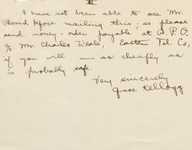 II
I have not been able to see Mr.
Reed before mailing this; so please
send money-order payable at G.P.O.
% Mr. Charles Weale, Eastern Tel. Co,
if you will — as cheaply as
is probably safe.
Very sincerely
Grace Kellogg